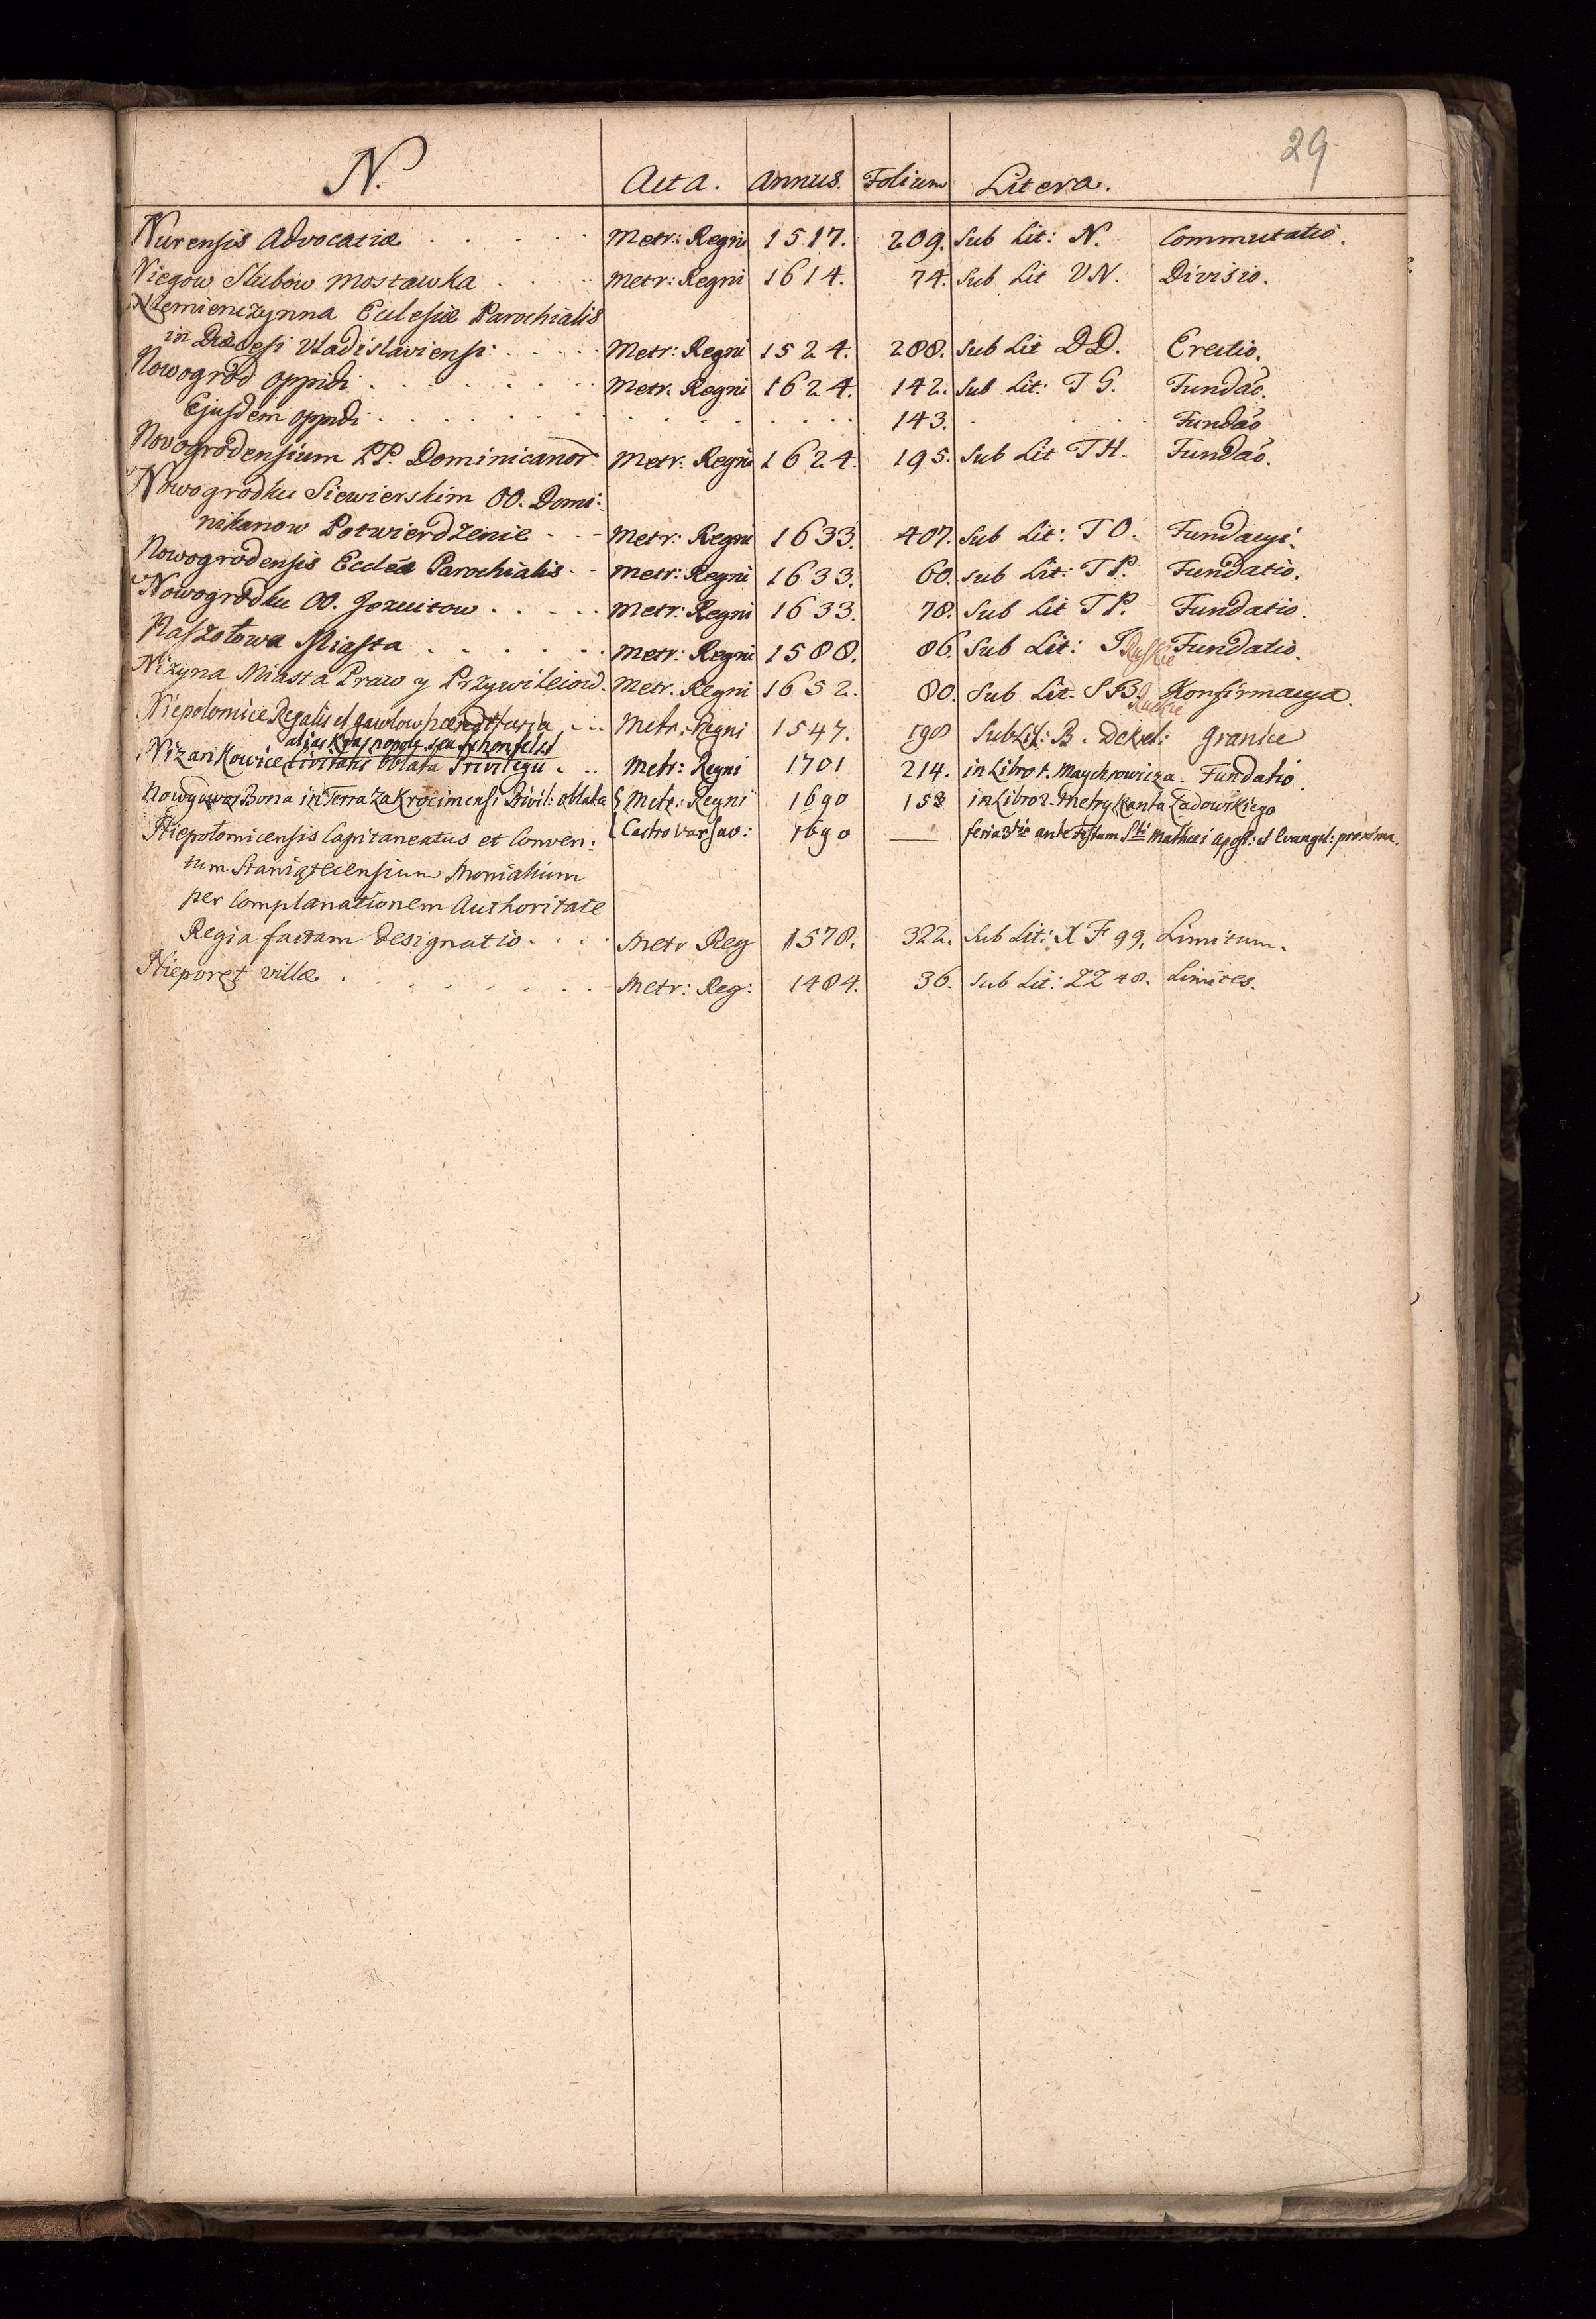 29
N. Acta. Annus. Folium Litera.
Nurensis Advocatiæ . . . . . Metr: Regni 1517. 209. Sub Lit: N. Commutatio.
Niegow Slubow Mostawka . . . . Metr: Regni 1614. 74. Sub Lit VN. Divisio.
Niemienczynna Eclesiæ Parochialis
in Diæcesi Vladislaviensi . . . . . Metr: Regni 1524. 288. Sub Lit DD. Erectio.
Nowogrod oppidi . . . . . . . . Metr. Regni 1624. 142. Sub Lit: TG. Fundáo.
Ejusdem oppidi . . . . . . . . . . . . 143. . . . . Fundáo
Novogrodensium PP. Dominicanor Metr. Regni 1624. 195. Sub Lit TH. Fundáo.
Nowogrodku Siewierskim OO. Domi:
nikanow Potwierdzenie - - - Metr: Regni 1633. 407. Sub Lit: TO. Fundacyi.
Nowogrodensis Eccléa Parochialis - - Metr: Regni 1633. 60. Sub Lit: TP. Fundatio.
Nowogrodku OO. Jezuitow . . . . . Metr: Regni 1633. 78. Sub Lit TP. Fundatio.
Naszotowa Miasta . . . . . . Metr: Regni 1588. 86. Sub Lit: Ruskie Fundatio.
Nizyna Miasta Praw y Przywileiow. Metr. Regni 1652. 80. Sub Lit. Ruskie Konfirmacya.
Niepolomice Regalis et Gawlow . . . Metr: Regni 1547. 198 Sub Lit: B. Dekret: Granice
alias Krasnopole seu Schonfeld
Nizankowice Civitatis Oblata Privilegii . . . Metr: Regni 1701 214. in Libro 1. Maychrowicza. Fundatio.
Nowydwor Bona in Terra Zakrocimensi Privil: oblata { Metr: Regni 1690 158 in Libro 2. Metrykanta Zadowskiego
{ Castro Varsav: 1690 — feria 3tia ante Festum Sti Mathei Apost: et Evangel: proxima.
Niepołomicensis Capitaneatus et Conven:
tum Staniątecensium Monialium
per Complanationem Authoritate
Regia factam Designatio . . . . Metr Reg 1578. 322. Sub Lit: XF 99. Limitum.
Nieporęt villæ . . . . . . . . Metr: Reg: 1484. 36. Sub Lit: ZZ 48. Limites.